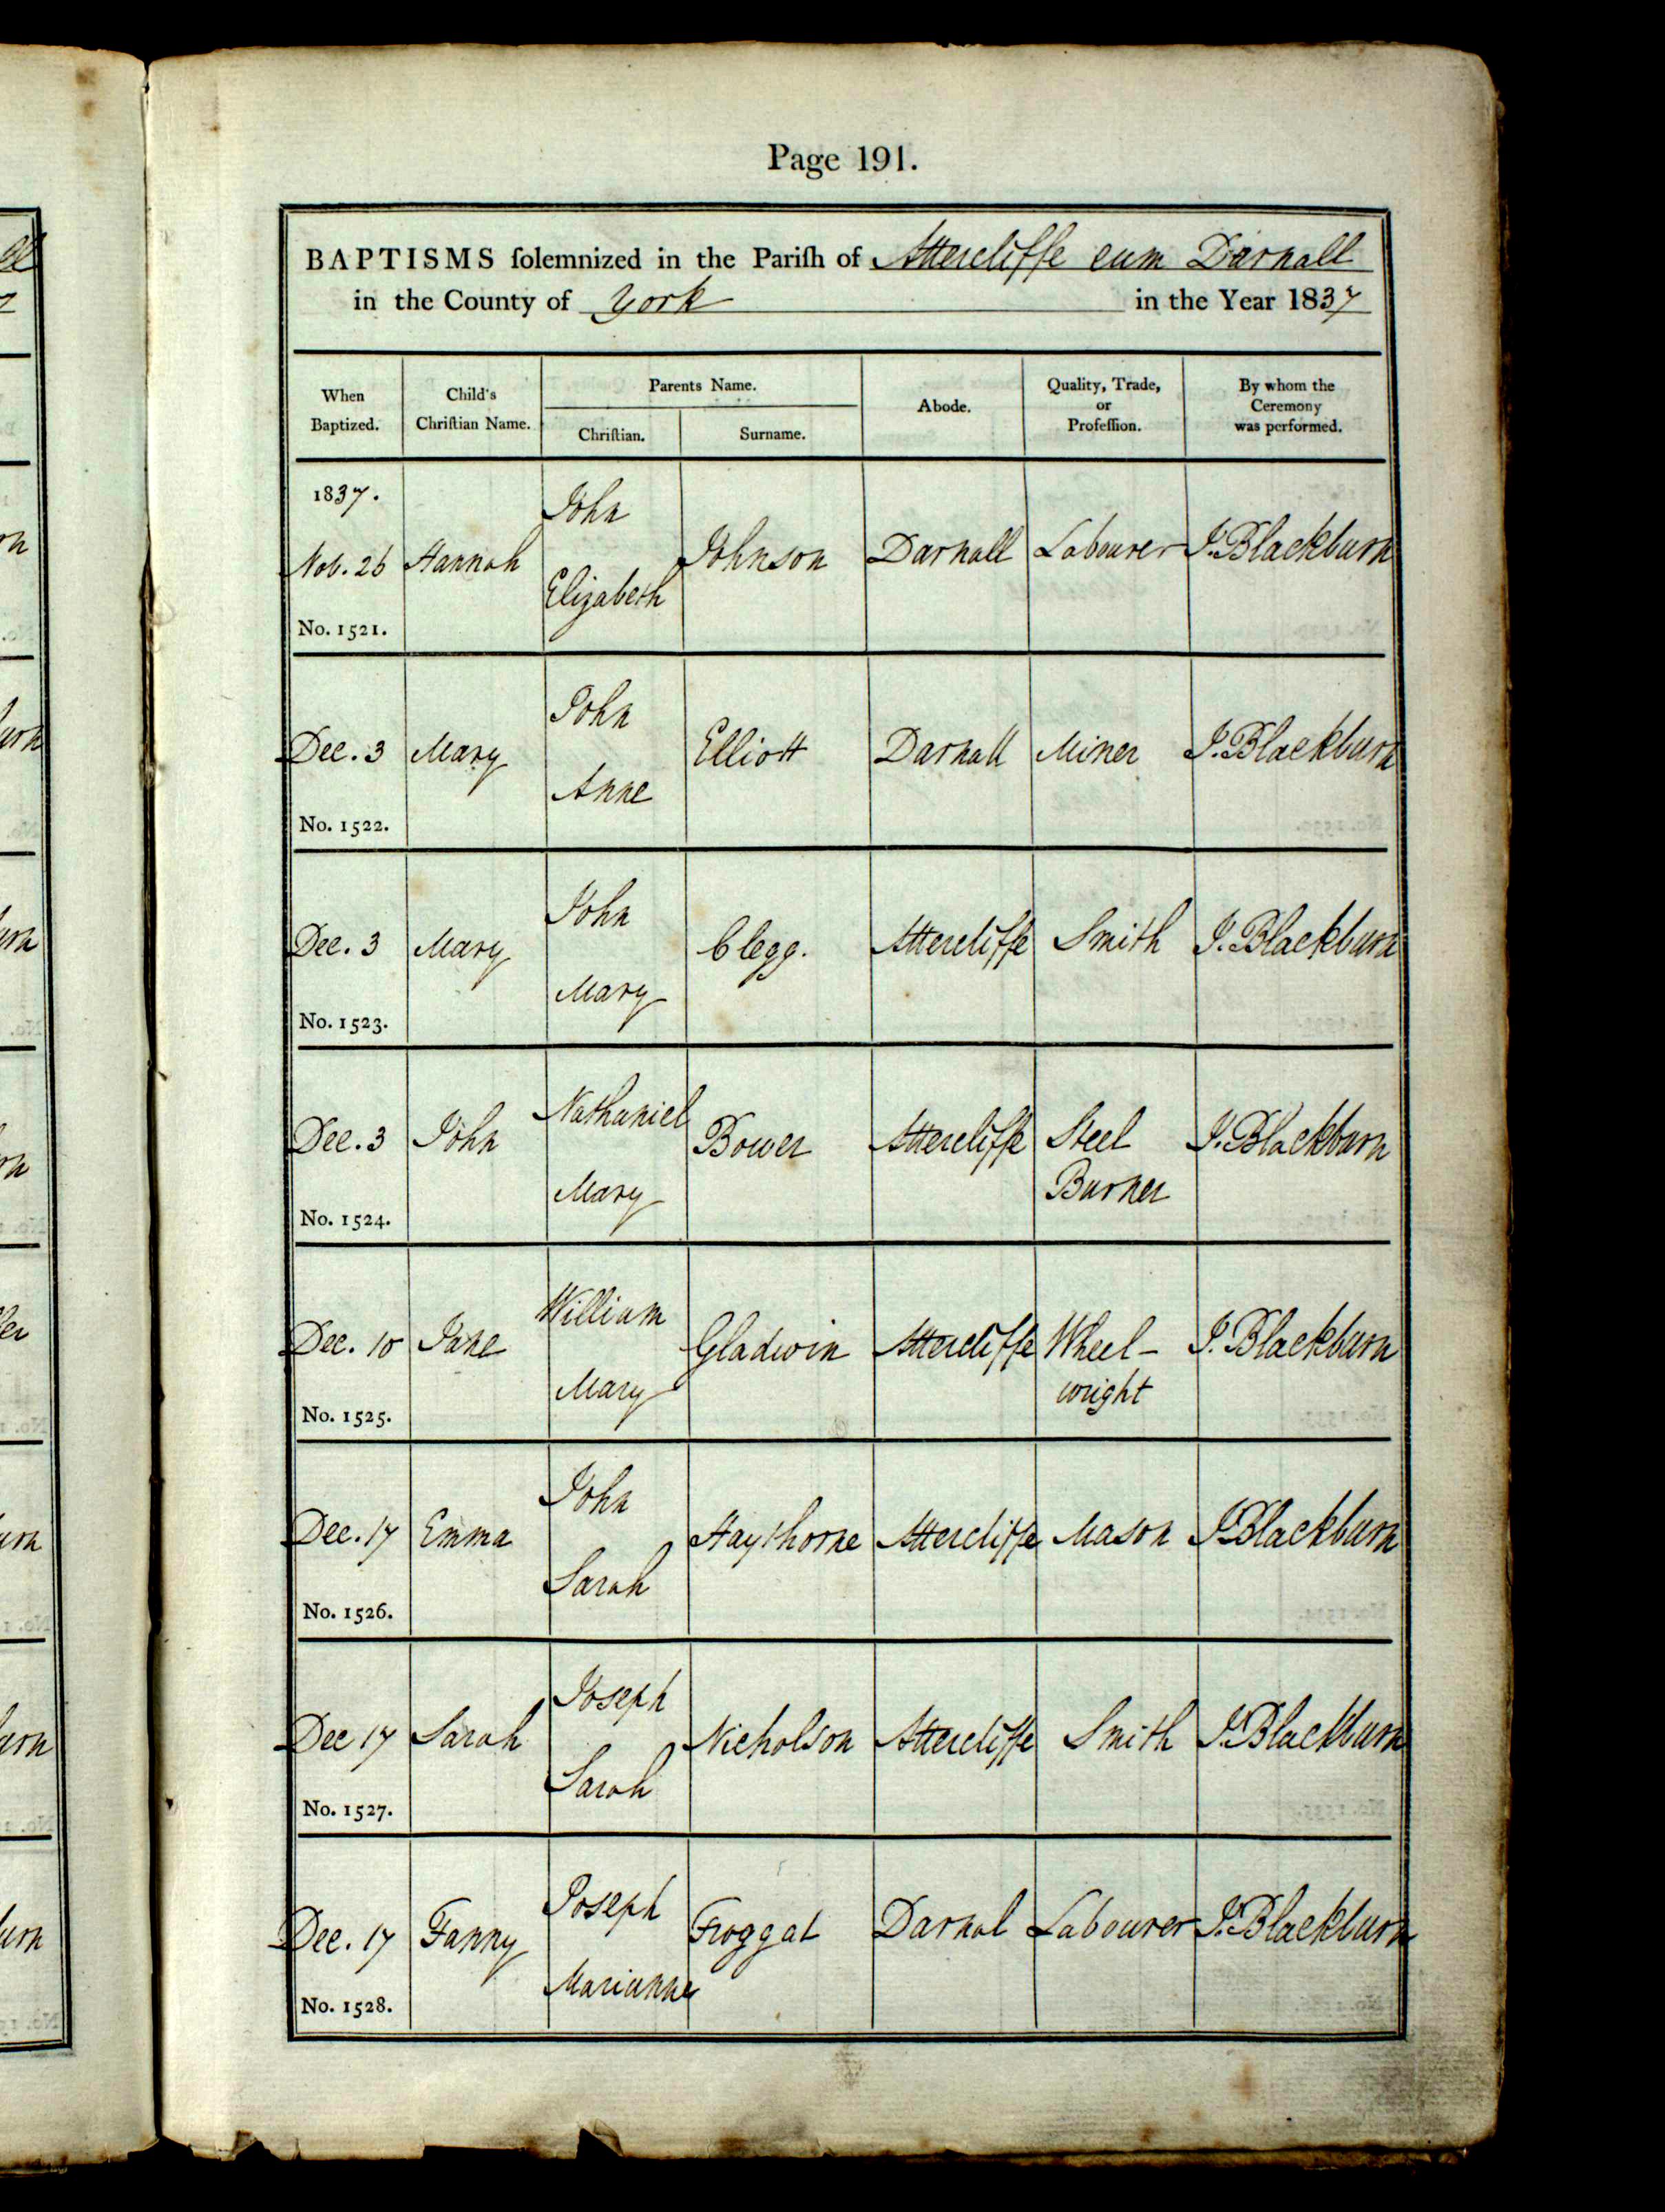 Page 191.
BAPTISMS ſolemnized in the Pariſh of Attercliffe cum Darnall
in the County of York in the Year 1837
When Baptized.
Child's Chriſtian Name.
Parents Name.
Chriſtian.
Surname.
Abode.
Quality, Trade, or Profeſſion.
By whom the Ceremony was performed.
1837.
John
Nov. 26 Hannah Johnson Darnall Labourer J. Blackburn
Elizabeth
No. 1521.
John
Dec. 3 Mary Elliott Darnall Miner J. Blackburn
Anne
No. 1522.
John
Dec. 3 Mary Clegg. Attercliffe Smith J. Blackburn
Mary
No. 1523.
Nathaniel
Dec. 3 John Bower Attercliffe Steel J. Blackburn
Mary Burner
No. 1524.
William
Dec. 10 Jane Gladwin Attercliffe Wheel- J. Blackburn
Mary wright
No. 1525.
John
Dec. 17 Emma Haythorne Attercliffe Mason J. Blackburn
Sarah
No. 1526.
Joseph
Dec 17 Sarah Nicholson Attercliffe Smith J. Blackburn
Sarah
No. 1527.
Joseph
Dec. 17 Fanny Froggat Darnal Labourer J. Blackburn
Marianne
No. 1528.